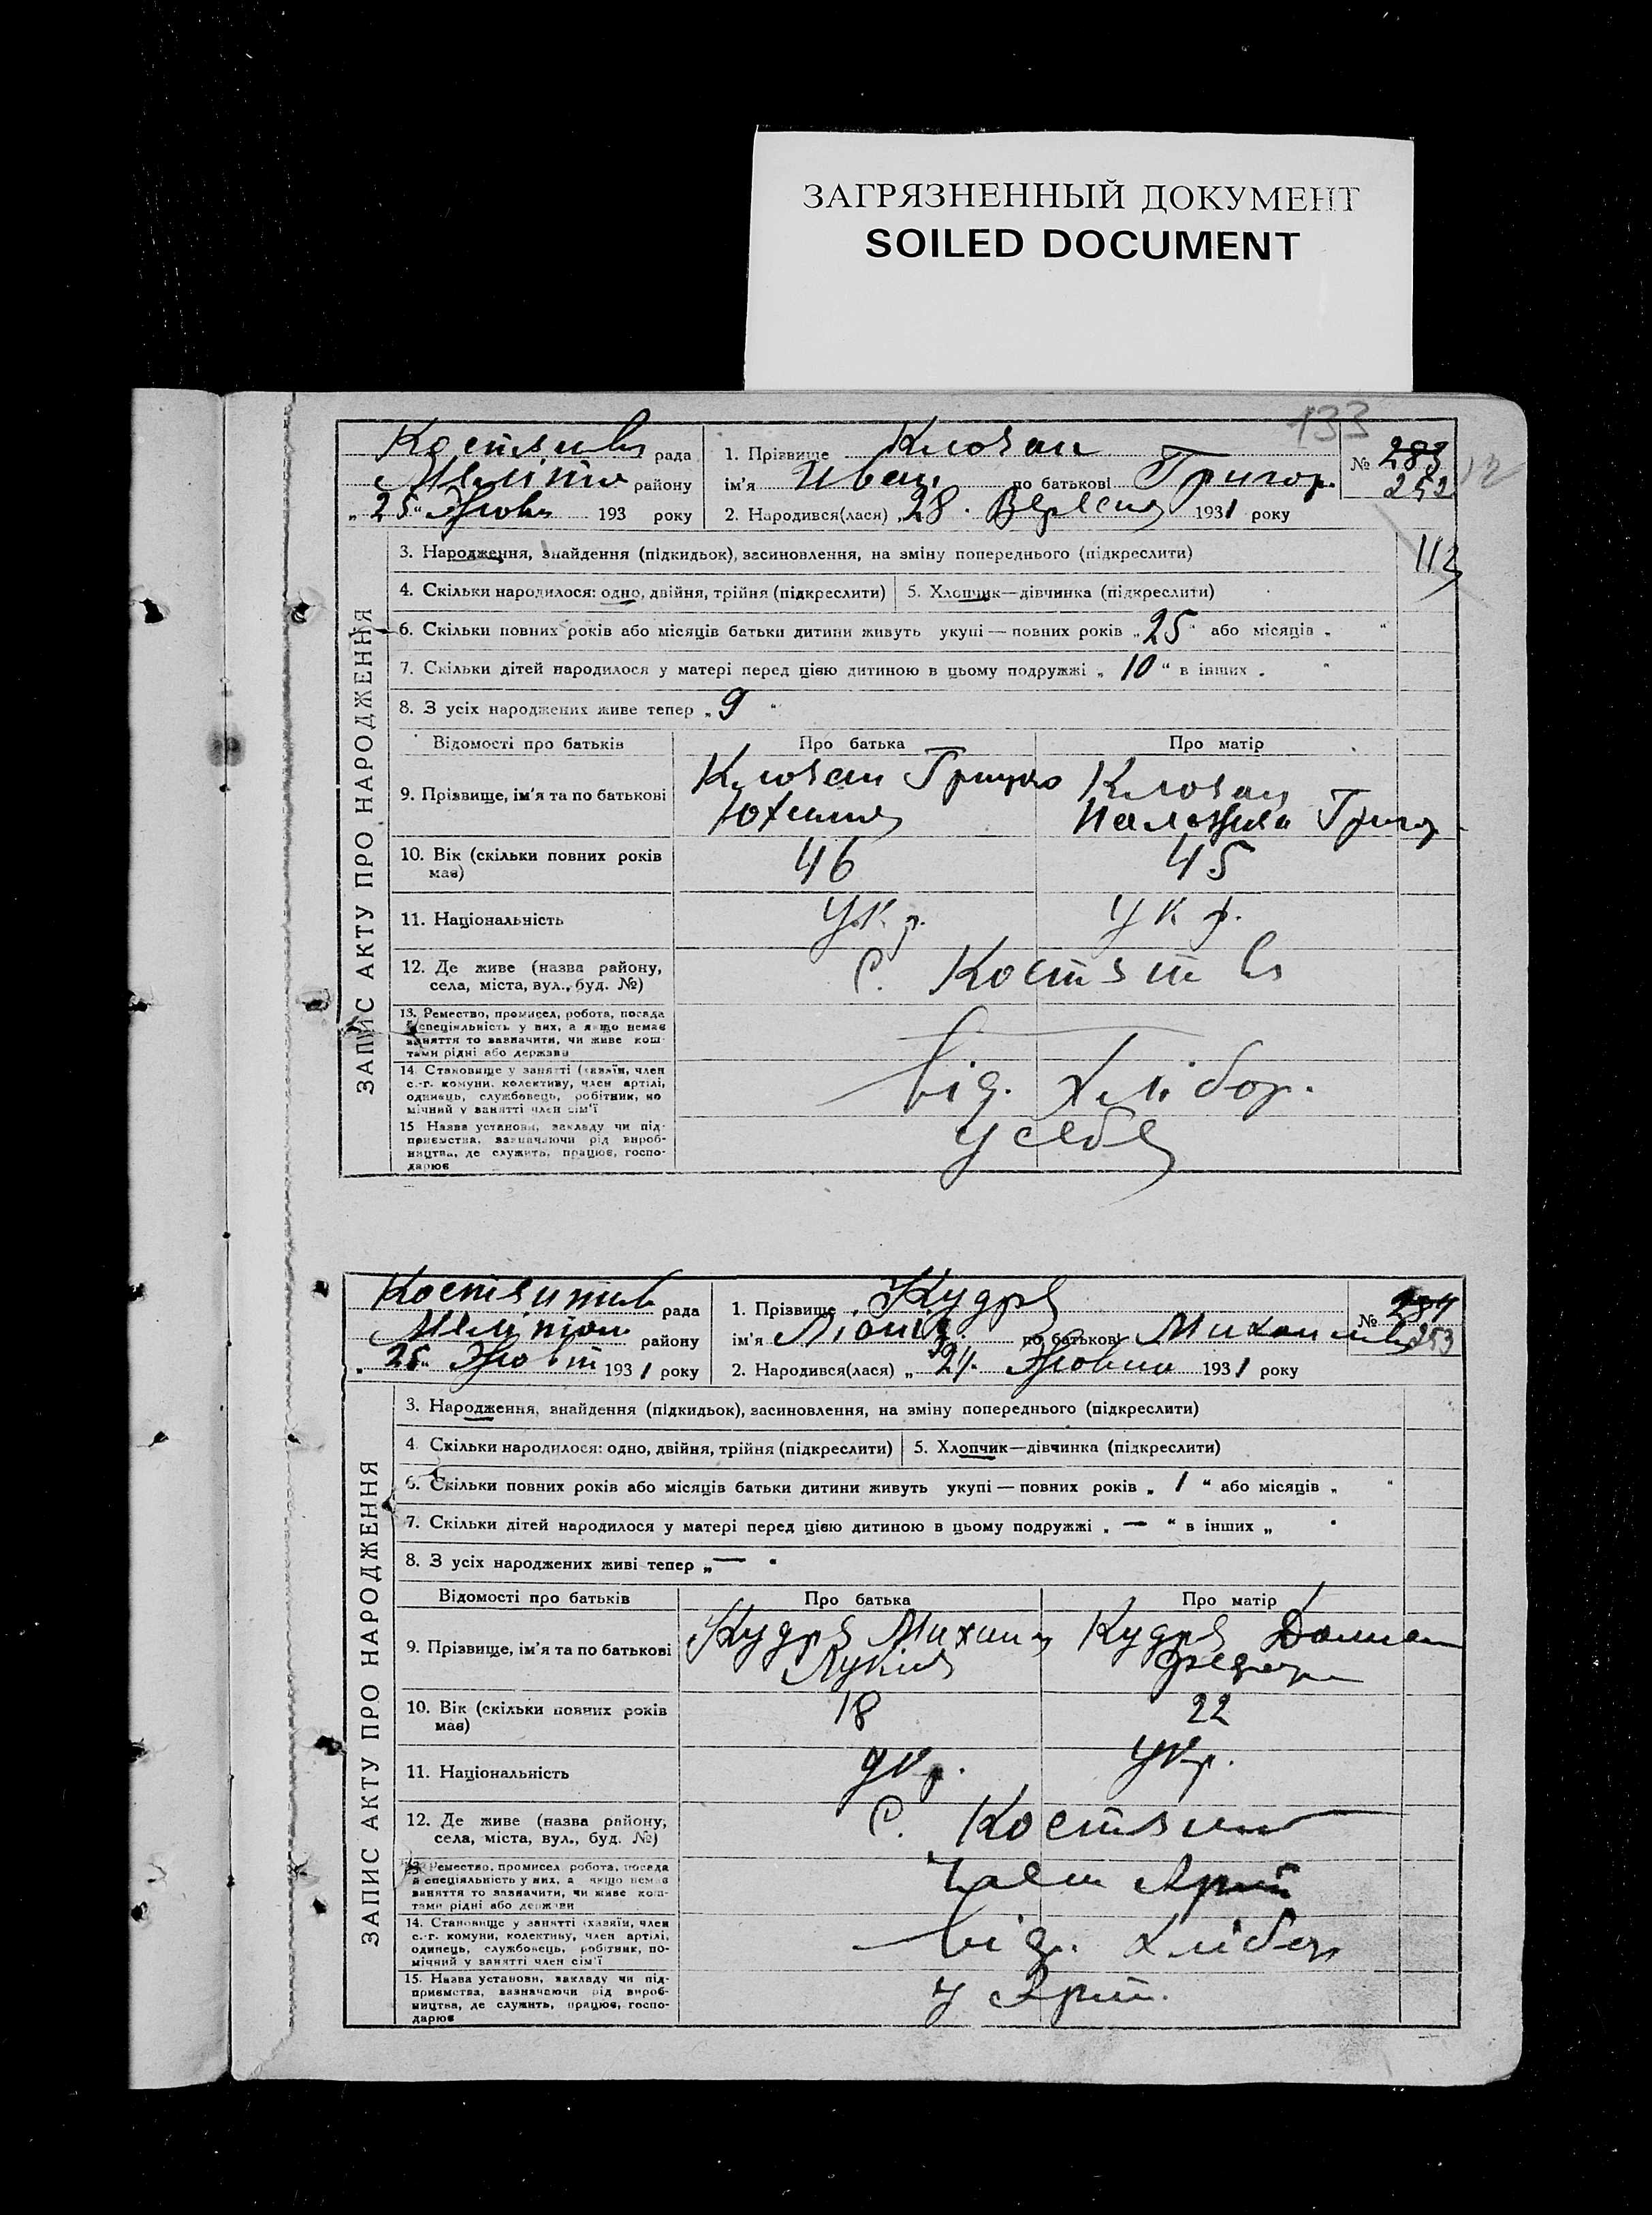 ЗАГРЯЗНЕННЫЙ ДОКУМЕНТ
SOILED DOCUMENT
133
рада
району
„25“ 193 року
1. Прізвище Клочан
ім'я Иван по батькові Григор.
2. Народився(лася) 28. Вересня 1931 року
№ 283
252
112
ЗАПИС АКТУ ПРО НАРОДЖЕННЯ
3. Народження, знайдення (підкидьок), засиновлення, на зміну попереднього (підкреслити)
4. Скільки народилося: одно, двійня, трійня (підкреслити)
5. Хлопчик—дівчинка (підкреслити)
6. Скільки повних років або місяців батьки дитини живуть укупі — повних років „25“ або місяців „ “
7. Скільки дітей народилося у матері перед цією дитиною в цьому подружжі „10“ в інших „ “
8. З усіх народжених живе тепер „9“
Відомості про батьків
Про батька
Про матір
9. Прізвище, ім'я та по батькові
Клочан
Клочан
Григор
10. Вік (скільки повних років
має)
46
45
11. Національність
Укр.
Укр.
12. Де живе (назва району,
села, міста, вул., буд. №)
с.
13. Ремество, промисел, робота, посада
й спеціяльність у них, а якщо немає
заняття то зазначити, чи живе кош-
тами рідні або держави
14. Становище у занятті (хазяїн, член
с.-г. комуни, колективу, член артілі,
одинець, службовець, робітник, по
мічний у занятті член сім'ї
Від. Хлібор.
15 Назва установи, закладу чи під-
приємства, зазначаючи рід вироб-
ництва, де служить, працює, госпо-
дарює
У себе
рада
району
„25“ Жовт 1931 року
1. Прізвище Кудря
ім'я по батькові
2. Народився(лася) „21. Жовтня 1931 року
№ 284
253
ЗАПИС АКТУ ПРО НАРОДЖЕННЯ
3. Народження, знайдення (підкидьок), засиновлення, на зміну попереднього (підкреслити)
4. Скільки народилося: одно, двійня, трійня (підкреслити)
5. Хлопчик—дівчинка (підкреслити)
6. Скільки повних років або місяців батьки дитини живуть укупі — повних років „ 1 “ або місяців „ “
7. Скільки дітей народилося у матері перед цією дитиною в цьому подружжі „ — “ в інших „ “
8. З усіх народжених живі тепер „ — “
Відомості про батьків
Про батька
Про матір
9. Прізвище, ім'я та по батькові
Кудря
Кудря
10. Вік (скільки повних років
має)
18
22
11. Національність
укр.
Укр.
12. Де живе (назва району,
села, міста, вул., буд. №)
с.
13. Ремество, промисел робота, посада
й спеціяльність у них, а якщо немає
заняття то зазначити, чи живе кош-
тами рідні або держави
член Арт
14. Становище у занятті (хазяїн, член
с.-г. комуни, колективу, член артілі,
одинець, службовець, робітник, по-
мічний у занятті член сім'ї
Від. хлібор
15. Назва установи, закладу чи під-
приємства, зазначаючи рід вироб-
ництва, де служить, працює, госпо-
дарює
у Арт.